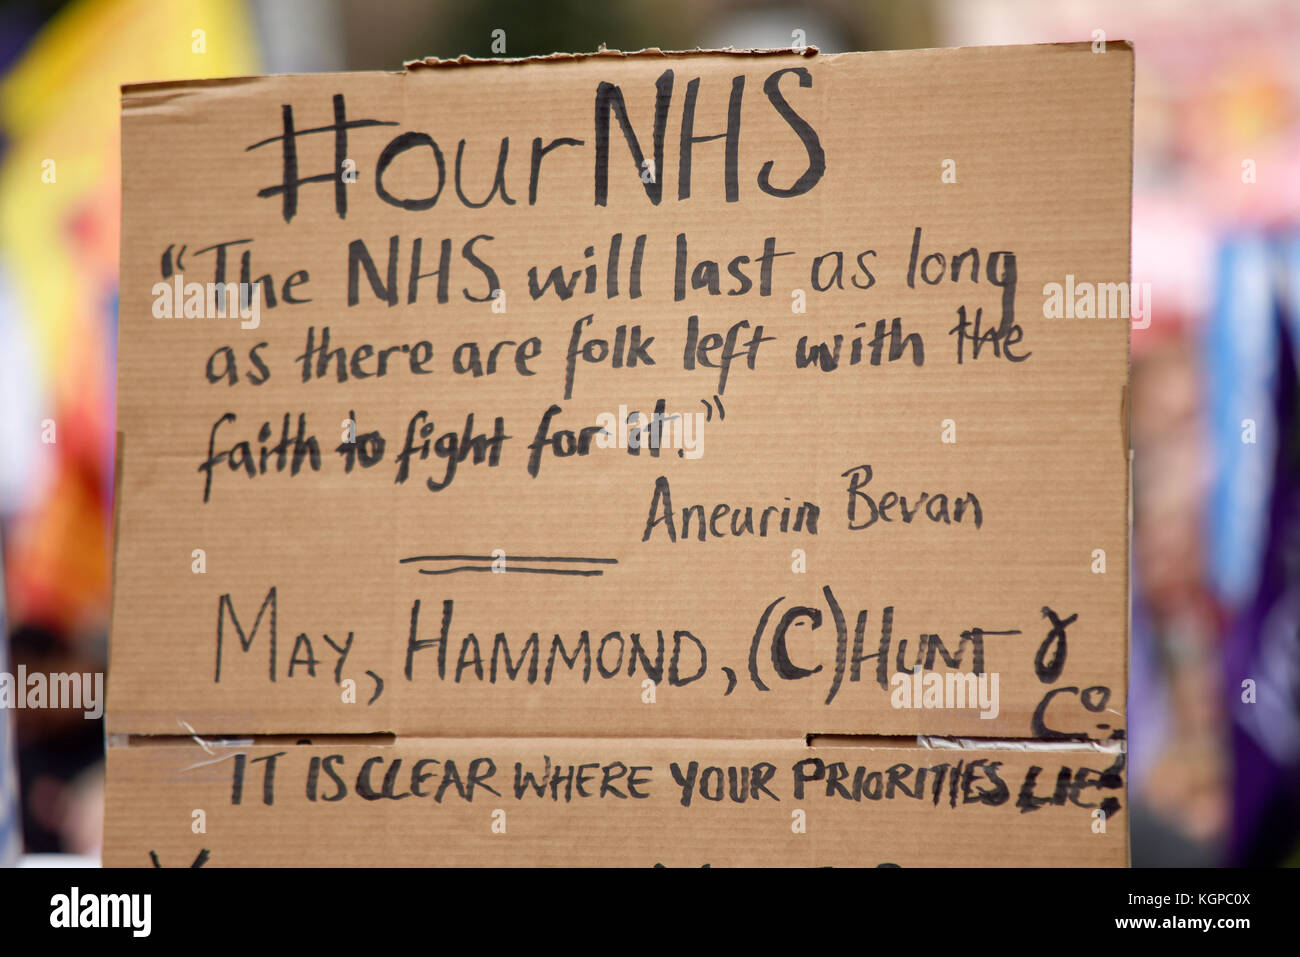 #ourNHS
"The NHS will last as long
as there are folk left with the
faith to fight for it."
Aneurin Bevan
MAY, HAMMOND, (C)HUNT &
Co.
IT IS CLEAR WHERE YOUR PRIORITIES LIE.
alamy stock photo
KGPC0X
www.alamy.com